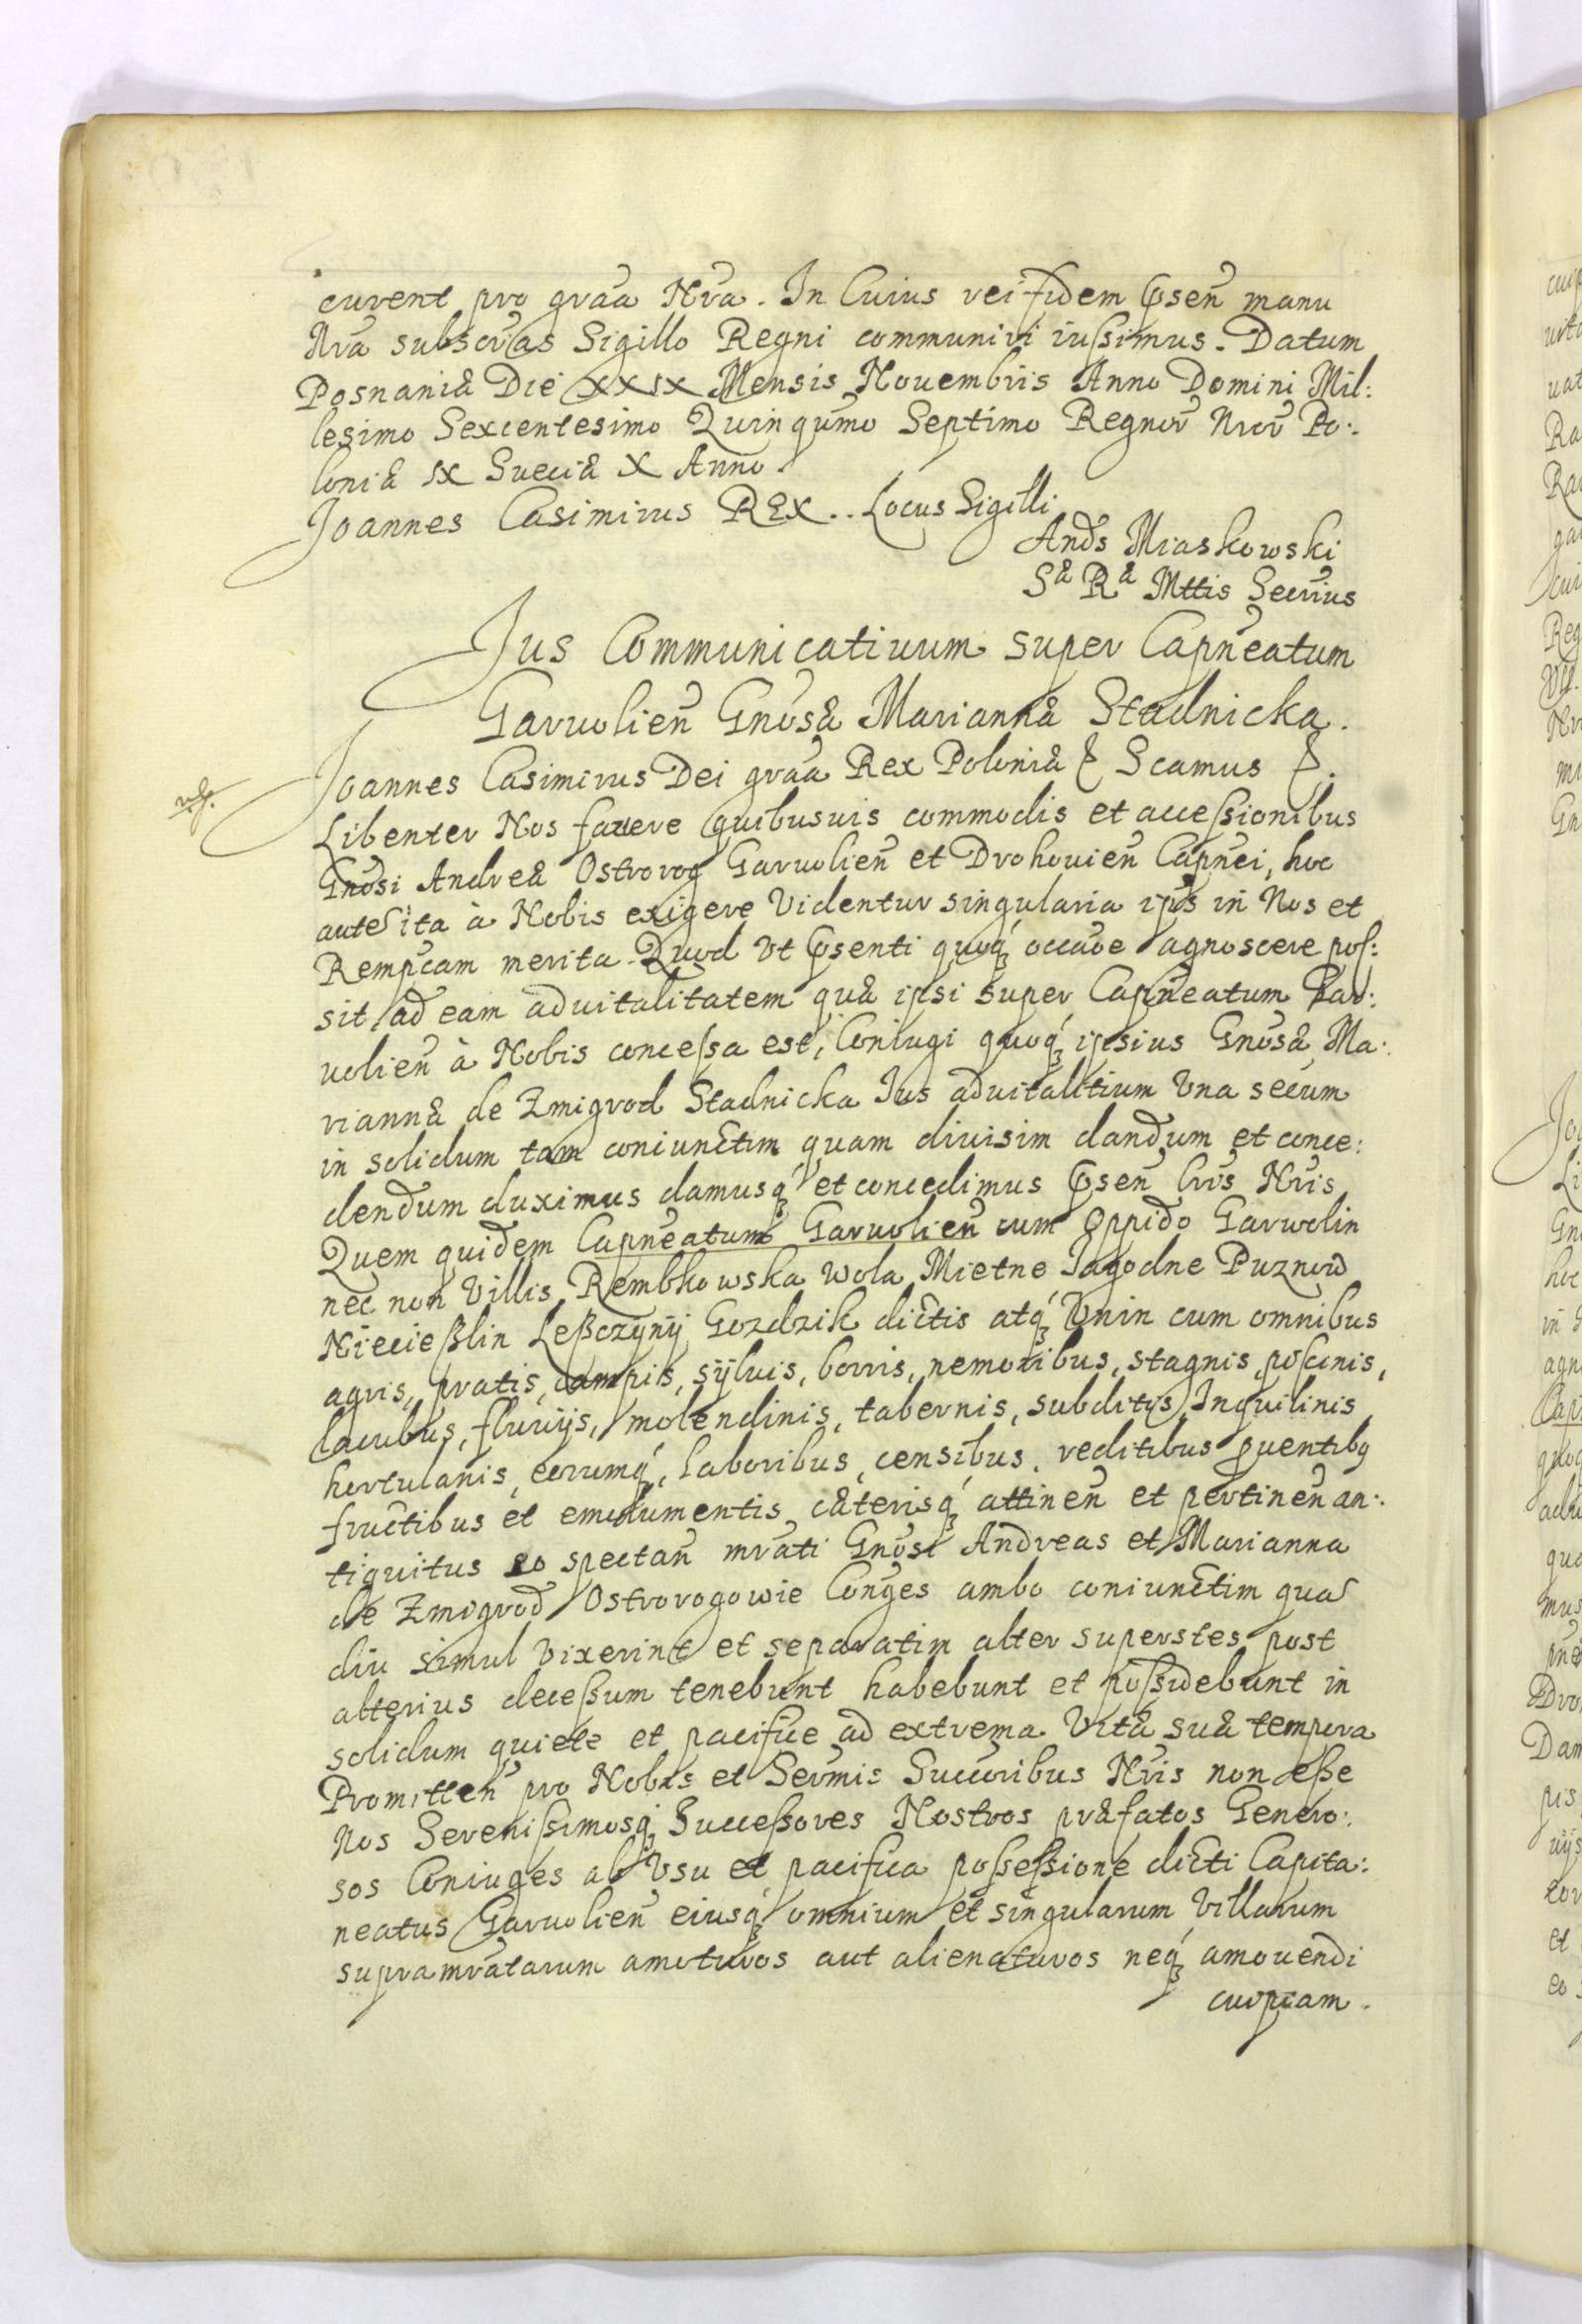 curent pro graã Nrã. In Cuius rei fidem Psen̄ manu
Nrã subscrãs Sigillo Regni communiri iussimus. Datum
Posnaniæ Die XXIX Mensis Nouembris Anno Domini Mil:
lesimo Sexcentesimo Quinqūmo Septimo Regnor̄ Nror̄ Po:
loniæ IX Sueciæ X Anno.
Joannes Casimirus REX.. Locus Sigilli
Andˢ Miaskowski
Sæ Ræ Mttis Secrius
Jus Communicatiuum super Capn̄eatum
Garuolien̄ Gn̄osæ Mariannæ Stadnicka.
Joannes Casimirus Dei graã Rex Poloniæ & Scamus &.
Libenter Nos fauere quibusuis commodis et accessionibus
Gn̄osi Andreæ Ostrorog Garuolien̄ et Drohouien̄ Capn̄ei, hoc
aute ita à Nobis exigere Videntur singularia ip̄s in Nos et
Remp̄cam merita. Quod Vt Psenti quoq́ occāoe agnoscere pos:
sit, ad eam aduitalitatem quæ ipsi super Capn̄eatum Gar:
uolien̄ à Nobis concessa est, Coniugi quoq́ ipsius Gn̄osæ Ma:
riannæ de Zmigrod Stadnicka Ius aduitalitium Vna secum
in solidum tam coniunctim quam diuisim dandum et conce:
dendum duximus damusq́ et concedimus Psen̄ Lr̄is Nr̄is
Quem quidem Capn̄eatum Garuolien̄ cum Oppido Garwolin
nec non Villis Rembkowska Wola Mietne Jagodne Puznow
Niecießlin Leßczÿnÿ Gozdzik dictis atq́ Vnin cum omnibus
agris, pratis, campis, sÿluis, borris, nemoribus, stagnis, piscinis,
lacubus, fluuijs, molendinis, tabernis, subditis, Inquilinis
hortulanis, eorumq́, laboribus, censibus, reditibus puentibꝫ
fructibus et emolumentis cæterisq́ attinen̄ et pertinen̄ an:
tiquitus eo spectan̄ mrãti Gn̄osi Andreas et Marianna
de Zmigrod Ostrorogowie Conges ambo coniunctim qua
diu simul Vixerint et separatim alter superstes post
alterius decessum tenebunt habebunt et possidebunt in
solidum quiete et pacifice ad extrema Vitæ suæ tempora
Promitten̄ pro Nobis et Serm̄is Succoribus Nr̄is non esse
Nos Serenissimosq́ Successores Nostros præfatos Genero:
sos Coniuges ab Vsu et pacifica possessione dicti Capita:
neatus Garuolien̄ eiusq́ omnium et singularum Villarum
supramrãtarum amoturos aut alienaturos neq́ amouendi
cuipiam.